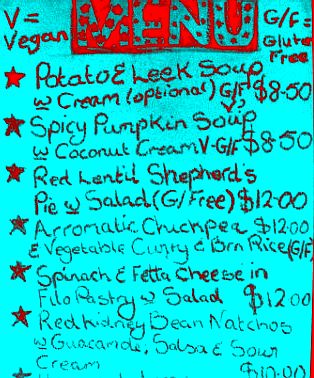 V= MENU G/F=
Vegan Gluten
Free
Potato & Leek Soup
w Cream (optional) G/F, $8.50
Spicy Pumpkin Soup V,
w Coconut Cream V-G/F $8.50
Red Lentil Shepherd's
Pie w Salad (G/Free) $12.00
Arromatic Chuckpea $12.00
& Vegetable Curry & Brn Rice (G/F)
Spinach & Fetta Cheese in
Filo Pastry w Salad $12.00
Red Kidney Bean Natchos
w Guacamole, Salsa & Sour
Cream $10.00